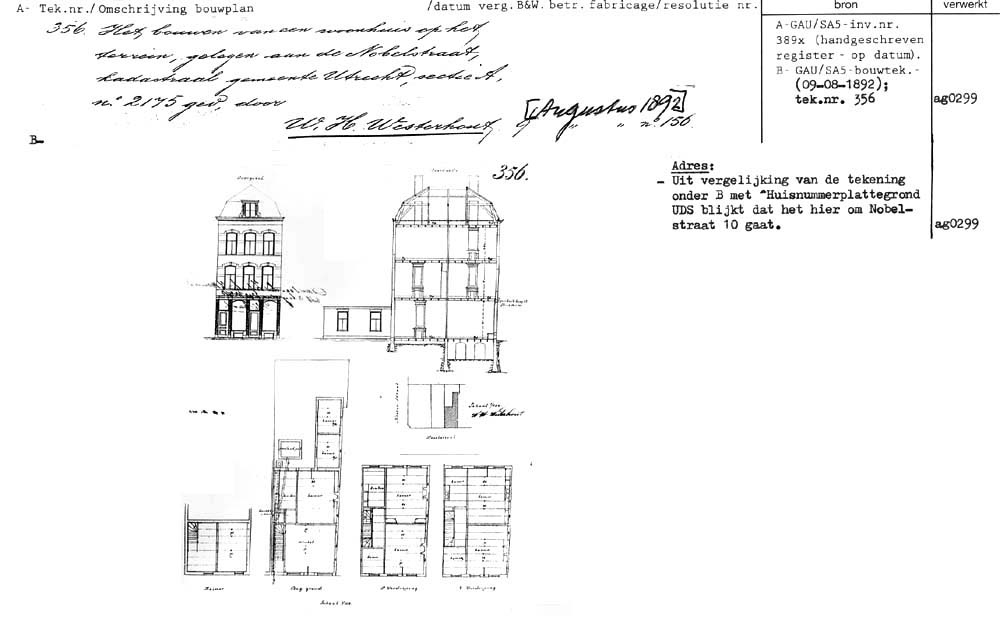 A- Tek.nr./Omschrijving bouwplan /datum verg.B&W. betr. fabricage/resolutie nr. bron verwerkt
356. Het bouwen van een woonhuis op het
terrein, gelegen aan de Nobelstraat,
kadastraal gemeente Utrecht, sectie A,
n° 2175 ged, door
W. H. Westerhout,
[Augustus 1892]
" " n° 156.
A-GAU/SA5-inv.nr.
389x (handgeschreven
register - op datum).
B- GAU/SA5-bouwtek.-
(09-08-1892);
tek.nr. 356 ag0299
B-
356.
Adres:
- Uit vergelijking van de tekening
onder B met "Huisnummerplattegrond
UDS blijkt dat het hier om Nobel-
straat 10 gaat. ag0299
Voorgevel
Kamer
Winkel
Kelder
Beg. grond
1e Verdieping
2e Verdieping